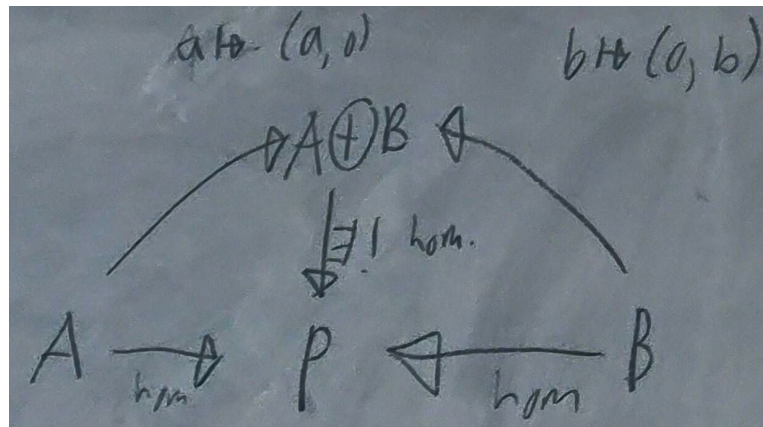 a ↦ (a, 0) b ↦ (0, b)
A ⊕ B
∃! hom.
A P B
hom hom